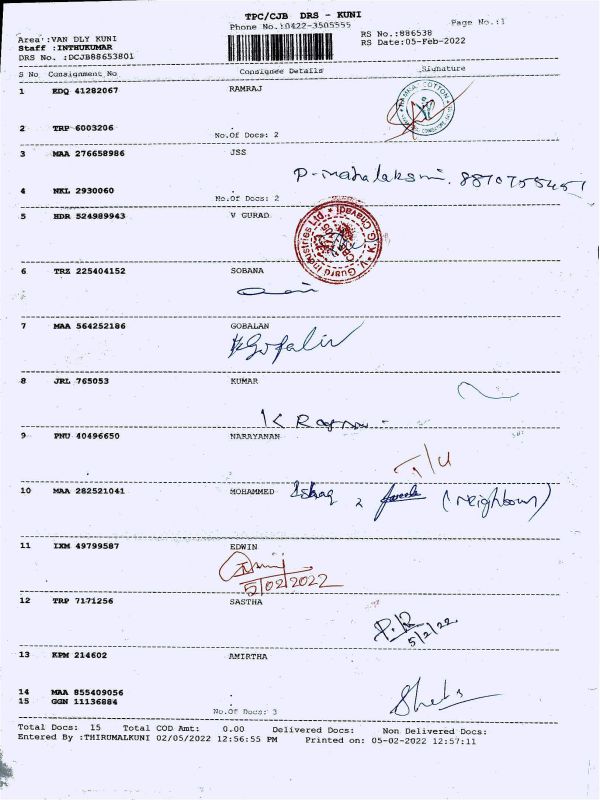 TPC/CJB DRS - KUNI
Phone No.:0422-3505555
Page No.:1
Area :VAN DLY KUNI
Staff :INTHUKUMAR
DRS No. :DCJB88653801
RS No.:886538
RS Date:05-Feb-2022
S No Consignment No Consignee Details Signature
1 EDQ 41282067 RAMRAJ
2 TRP 6003206 .
No.Of Docs: 2
3 MAA 276658986 JSS
P-mahalaksmi. 8870755451
4 NKL 2930060 .
No.Of Docs: 2
5 HDR 524989943 V GURAD
V. Guard Industries Ltd
6 TRZ 225404152 SOBANA
7 MAA 564252186 GOBALAN
8 JRL 765053 KUMAR
9 PNU 40496650 NARAYANAN
10 MAA 282521041 MOHAMMED Ishaq (Neighbour)
11 IXM 49799587 EDWIN
5/02/2022
12 TRP 7171256 SASTHA
P.R
5/2/22
13 KPM 214602 AMIRTHA
14 MAA 855409056 .
15 GGN 11136884
No.Of Docs: 3
Total Docs: 15 Total COD Amt: 0.00 Delivered Docs: Non Delivered Docs:
Entered By :THIRUMALKUNI 02/05/2022 12:56:55 PM Printed on: 05-02-2022 12:57:11